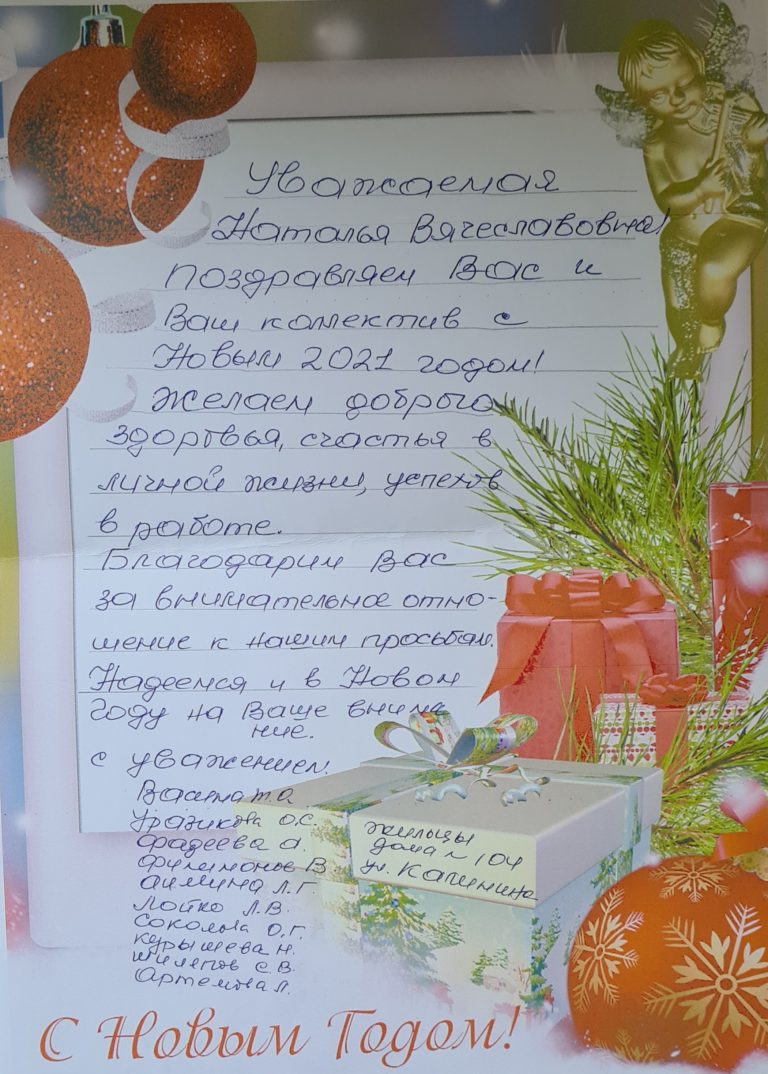 Уважаемая
Наталья Вячеславовна!
Поздравляем Вас и
Ваш коллектив с
Новым 2021 годом!
Желаем доброго
здоровья, счастья в
личной жизни, успехов
в работе.
Благодарим Вас
за внимательное отно-
шение к нашим просьбам.
Надеемся и в Новом
году на Ваше внима
ние.
С уважением.
Уразикова О.С.
Фадеева А.
Филимонов В
Аимина Л.Г
Лойко Л.В.
Соколова О.Г.
Курышева Н.
Шиляпов С.В.
Артемова Л.
Жильцы
дома № 104
ул. Калинина
С Новым Годом!